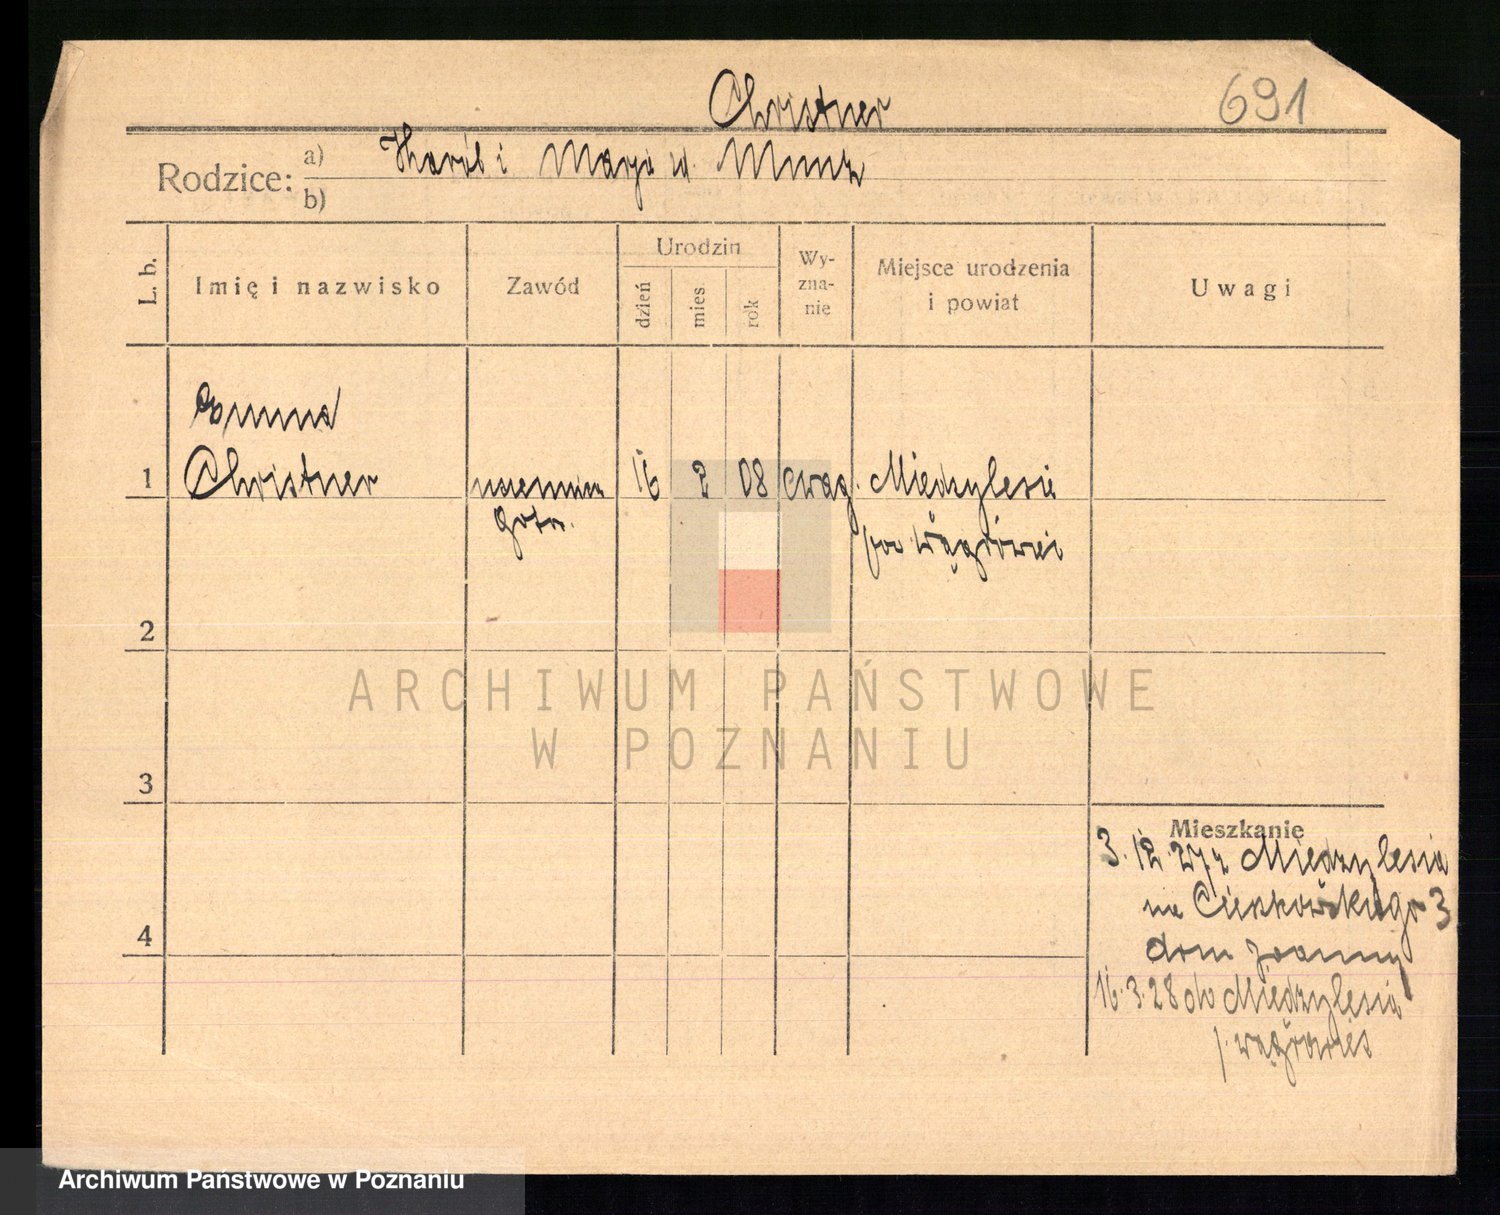 Christner
691
Rodzice: a) Karól i Marja ur. Muntz
b)
L. b.
Imię i nazwisko
Zawód
Urodzin
dzień
mies
rok
Wy-
zna-
nię
Miejsce urodzenia
i powiat
Uwagi
Emma
1 Christner uczennica 16 2 08 ewag. Miedzylesie
gotow. pow Wągrówei
2
3
4
Mieszkanie
3. 12. 27 z Miedzylesia
na Cieszkowskiego 3
dom Joanny
16. 3. 28 do Miedzylesia
p. wągrowiec
ARCHIWUM PAŃSTWOWE
W POZNANIU
Archiwum Państwowe w Poznaniu